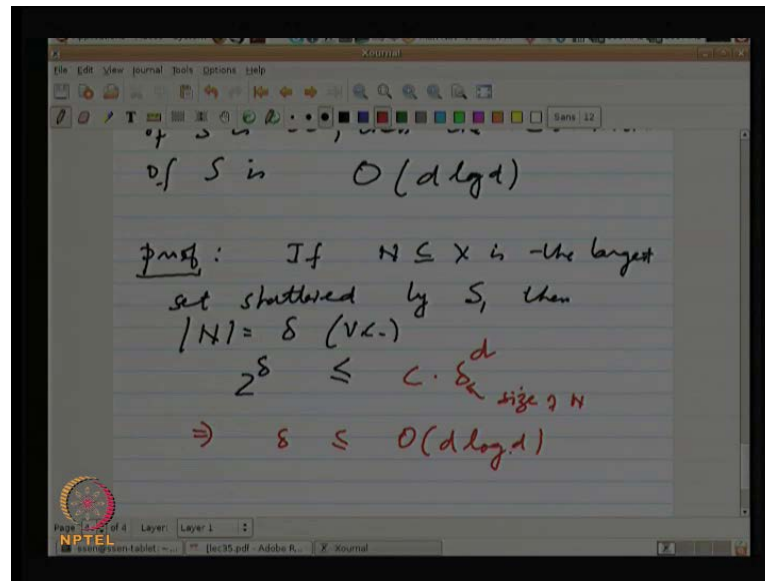 Xournal
File Edit View Journal Tools Options Help
Sans 12
of S is
of S is O(d log d)
proof: If N ⊆ X is the largest
set shattered by S, then
|N| = δ (VC-)
2^δ ≤ c. δ^d
size of N
⇒ δ ≤ O(d log d)
Page of 4 Layer: Layer 1
NPTEL
ssen@ssen-tablet: ~... [lec35.pdf - Adobe R... Xournal